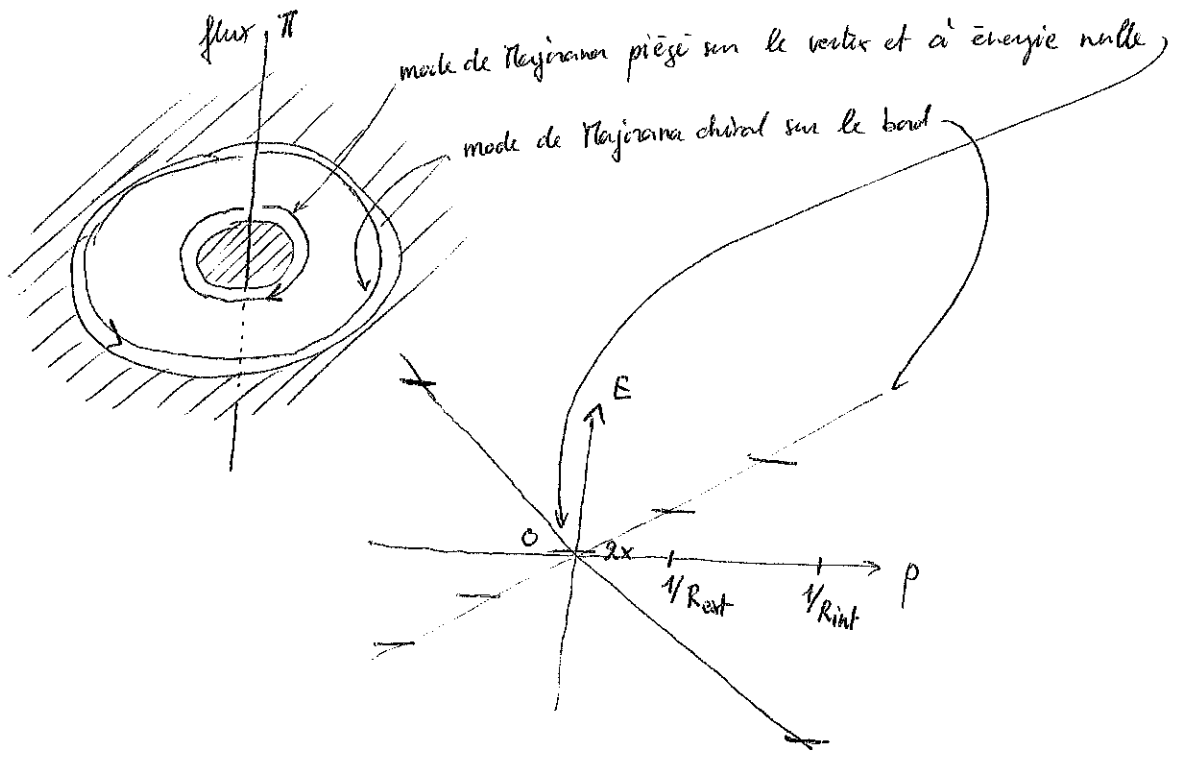 flux π
mode de Majorana piégé sur le vortex et à énergie nulle
mode de Majorana chiral sur le bord
E
0
2x
p
1/Rext
1/Rint